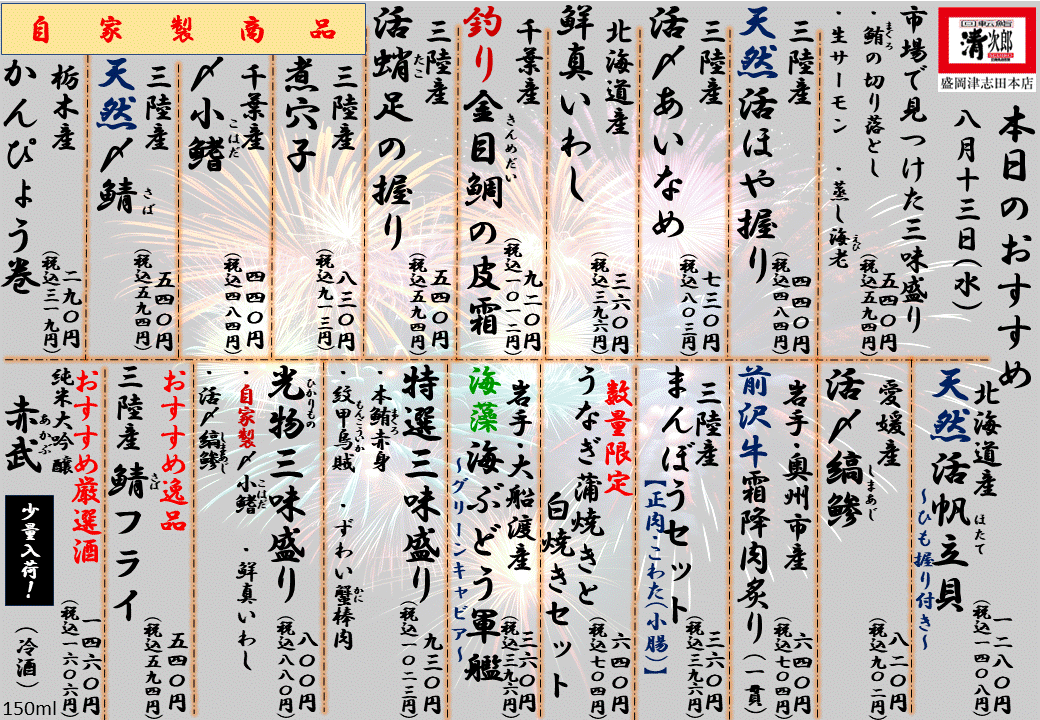 回転鮨
清次郎
盛岡津志田本店
本日のおすすめ
八月十三日(水)
市場で見つけた三味盛り
・鮪の切り落とし
まぐろ
・生サーモン ・蒸し海老
えび
五四〇円
(税込五九四円)
三陸産
天然活ほや握り
四四〇円
(税込四八四円)
三陸産
活〆あいなめ
七三〇円
(税込八〇三円)
北海道産
鮮真いわし
三六〇円
(税込三九六円)
千葉産
釣り金目鯛の皮霜
きんめだい
九二〇円
(税込一〇一二円)
三陸産
活蛸足の握り
たこ
五四〇円
(税込五九四円)
自家製商品
三陸産
煮穴子
八三〇円
(税込九一三円)
千葉産
〆小鰭
こはだ
四四〇円
(税込四八四円)
三陸産
天然〆鯖
さば
五四〇円
(税込五九四円)
栃木産
かんぴょう巻
二九〇円
(税込三一九円)
北海道産
天然活帆立貝
ほたて
~ひも握り付き~
一二八〇円
(税込一四〇八円)
愛媛産
活〆縞鯵
しまあじ
八二〇円
(税込九〇二円)
岩手・奥州市産
前沢牛霜降肉炙り(一貫)
六四〇円
(税込七〇四円)
三陸産
まんぼうセット
【正肉・こわた(小腸)】
三六〇円
(税込三九六円)
数量限定
うなぎ蒲焼きと
白焼きセット
六四〇円
(税込七〇四円)
岩手・大船渡産
海藻海ぶどう軍艦
~グリーンキャビア~
三六〇円
(税込三九六円)
特選三味盛り
・本鮪赤身
まぐろ
・紋甲烏賊 ・ずわい蟹棒肉
もんごういか
かに
九三〇円
(税込一〇二三円)
光物三味盛り
ひかりもの
・自家製〆小鰭 ・鮮真いわし
こはだ
・活〆縞鯵
しまあじ
八〇〇円
(税込八八〇円)
おすすめ逸品
三陸産鯖フライ
さば
五四〇円
(税込五九四円)
おすすめ厳選酒
純米大吟醸
赤武
あかぶ
少量入荷!
(冷酒)
一四六〇円
(税込一六〇六円)
150ml